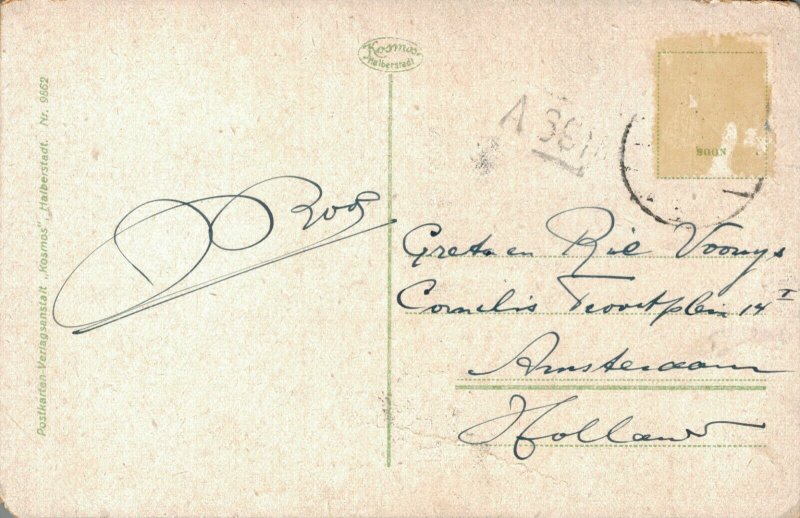 Postkarten-Verlagsanstalt „Kosmos“ Halberstadt. Nr. 9862
Kosmos
Halberstadt
A 36
D Roos
Greta en Rie Voorvys
Cornelis Troostplein 14 I
Amsterdam
Holland